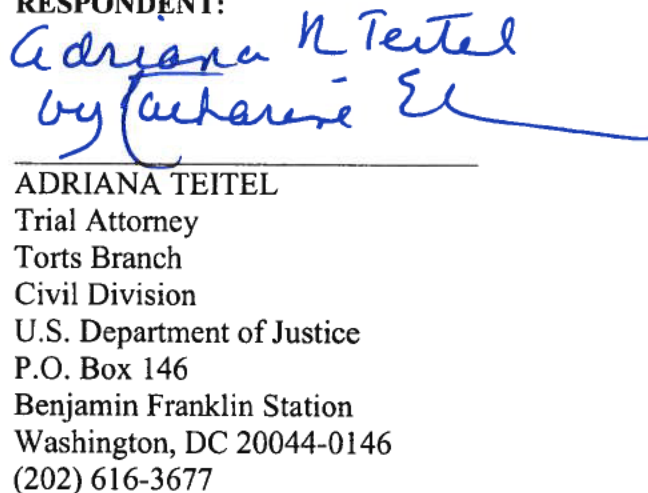 RESPONDENT:
Adriana N Teitel
by Catharine E
ADRIANA TEITEL
Trial Attorney
Torts Branch
Civil Division
U.S. Department of Justice
P.O. Box 146
Benjamin Franklin Station
Washington, DC 20044-0146
(202) 616-3677